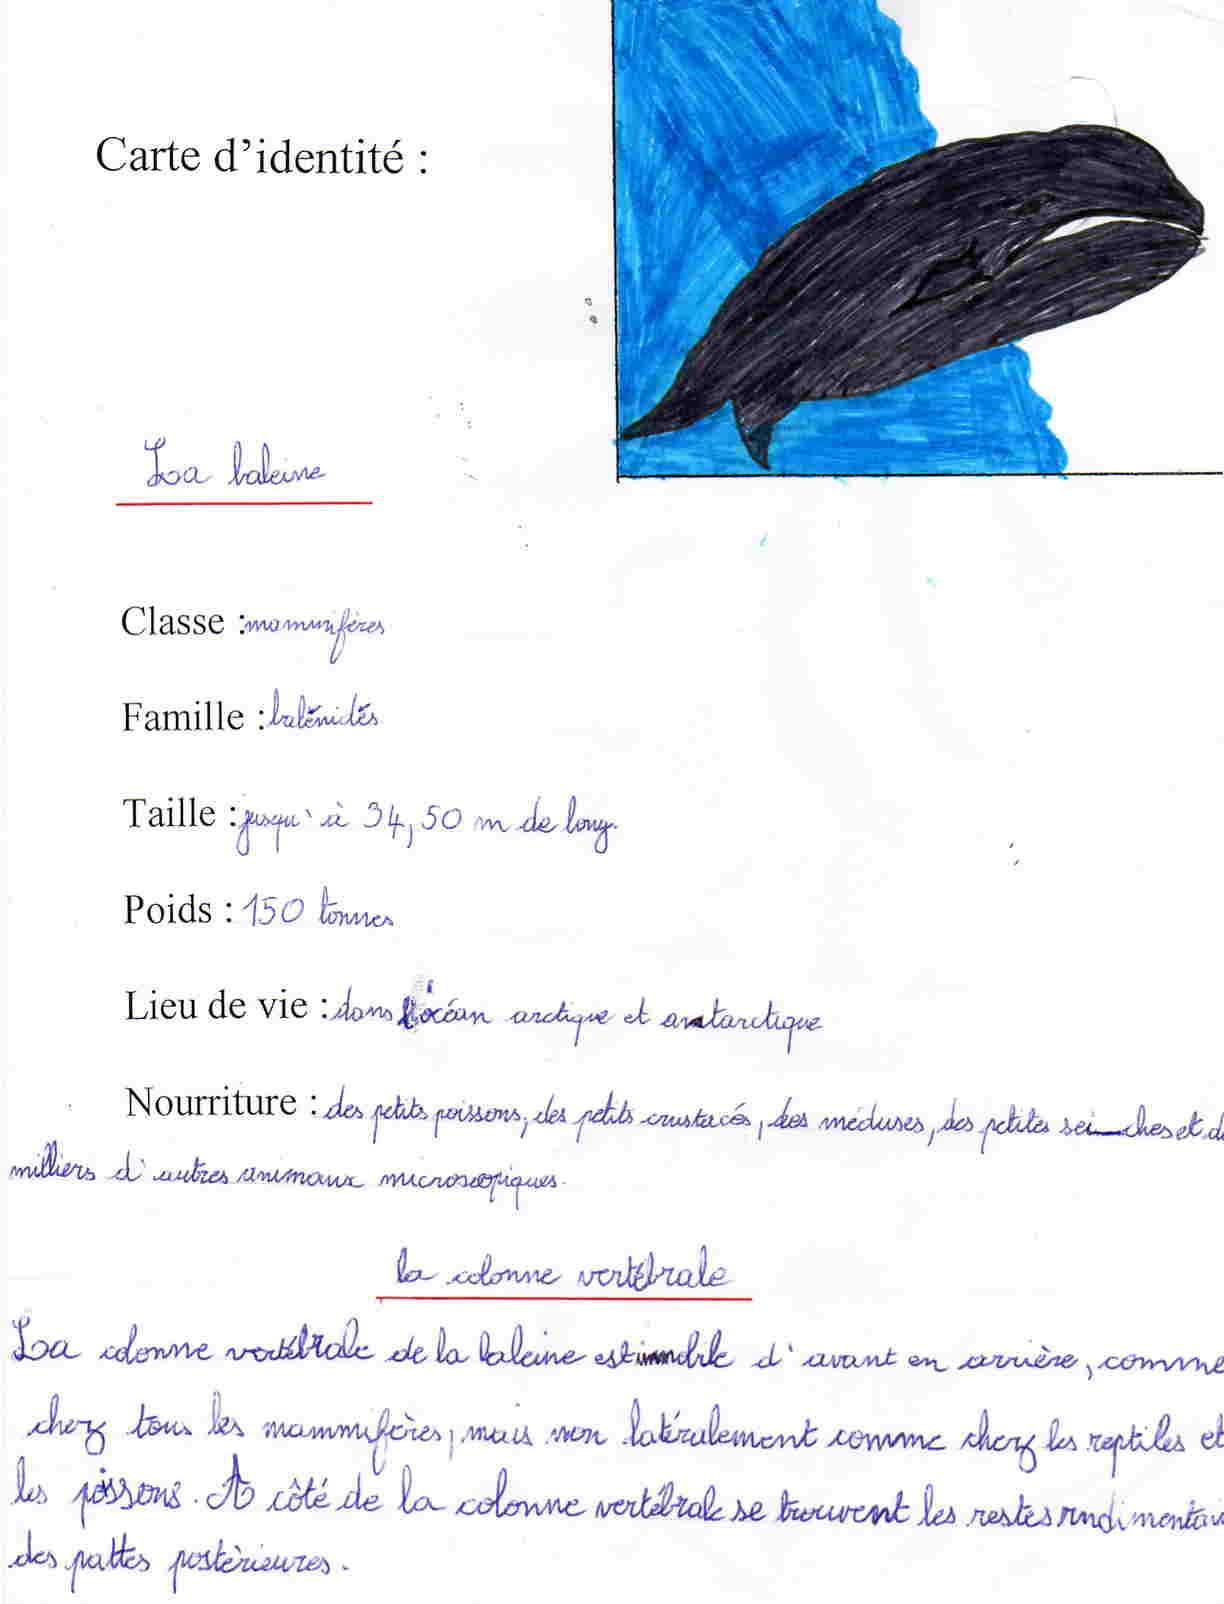 Carte d'identité :
La baleine
Classe : mammifères
Famille : balénidés
Taille : jusqu'à 34,50 m de long.
Poids : 150 tonnes
Lieu de vie : dans l'océan arctique et antarctique
Nourriture : des petits poissons, des petits crustacés, des méduses, des petites sei ches et
milliers d'autres animaux microscopiques.
la colonne vertébrale
La colonne vertébrale de la baleine est d'avant en arrière, comme
chez tous les mammifères, mais non latéralement comme chez les reptiles et
les poissons. A côté de la colonne vertébrale se trouvent les restes
des pattes postèrieures.